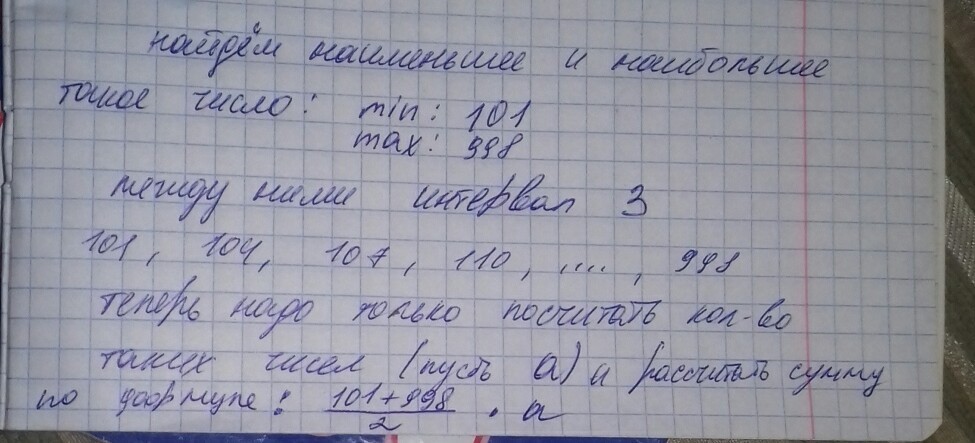 найдём наименьшее и наибольшее
такое число: min: 101
max: 998
между ними интервал 3
101, 104, 107, 110, ...., 998
теперь надо только посчитать кол-во
таких чисел (пусть a) и рассчитать сумму
по формуле: (101+998)/2 · a